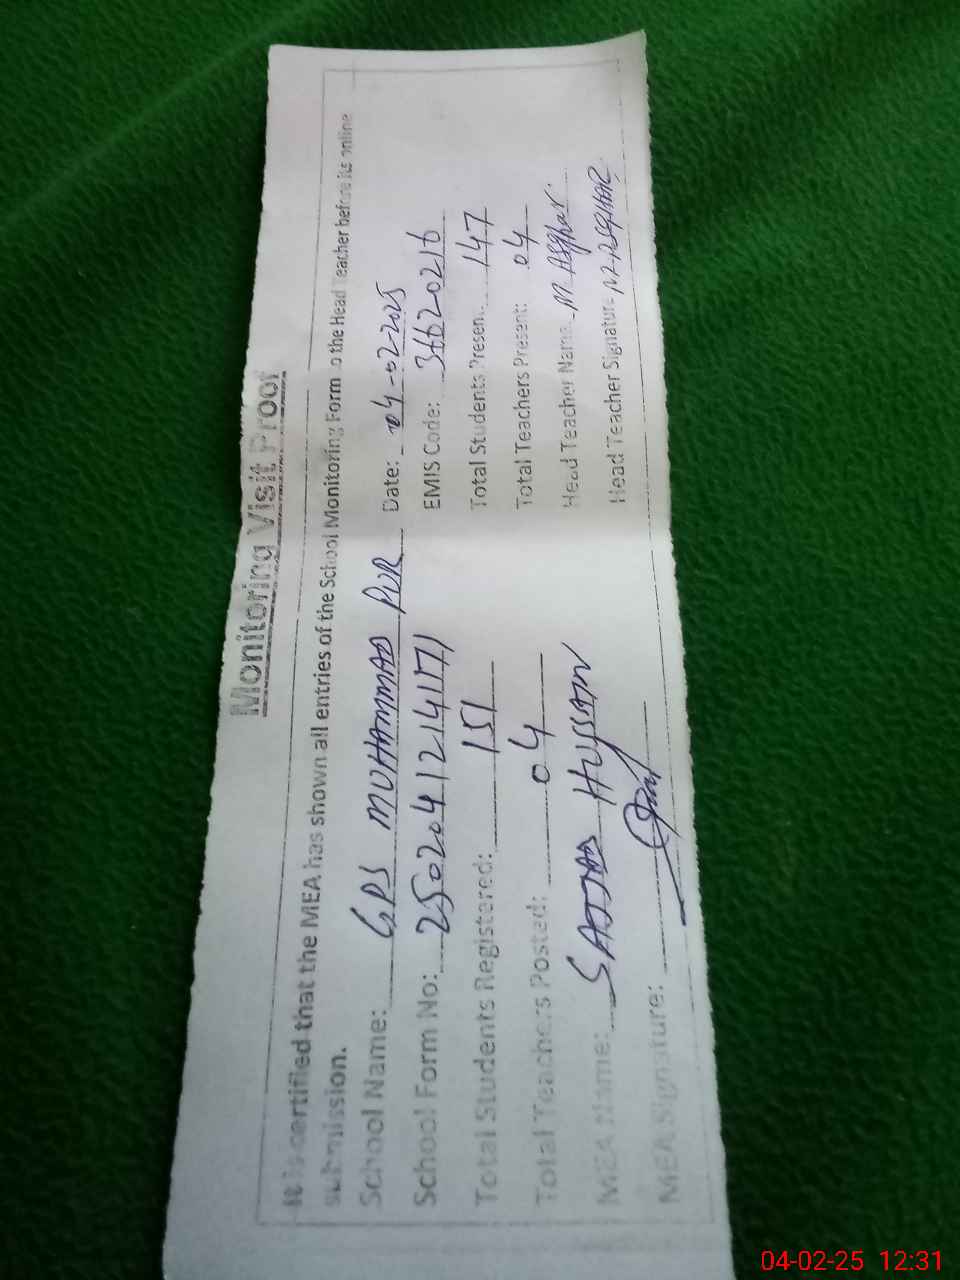 Monitoring Visit Proof
It is certified that the MEA has shown all entries of the School Monitoring Form to the Head Teacher before its online
submission.
School Name: GPS MUHAMMAD PUR Date: 04-02-2025
School Form No: EMIS Code: 36620216
Total Students Registered: 151 Total Students Present: 147
Total Teachers Posted: 04 Total Teachers Present: 04
MEA Name: SAJJAD HUSSAIN Head Teacher Name: M Asghar
MEA Signature: Head Teacher Signature M. ASGHAR
04-02-25 12:31